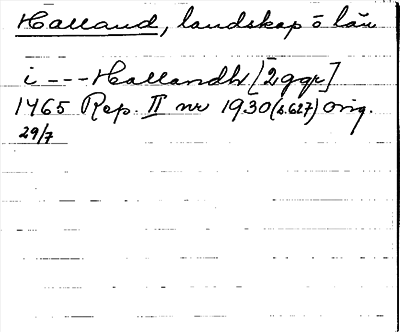 Halland, landskap o län
i --- Hallandh [2 ggr]
1465 Rep. II nr 1930 (s. 627) orig.
29/7